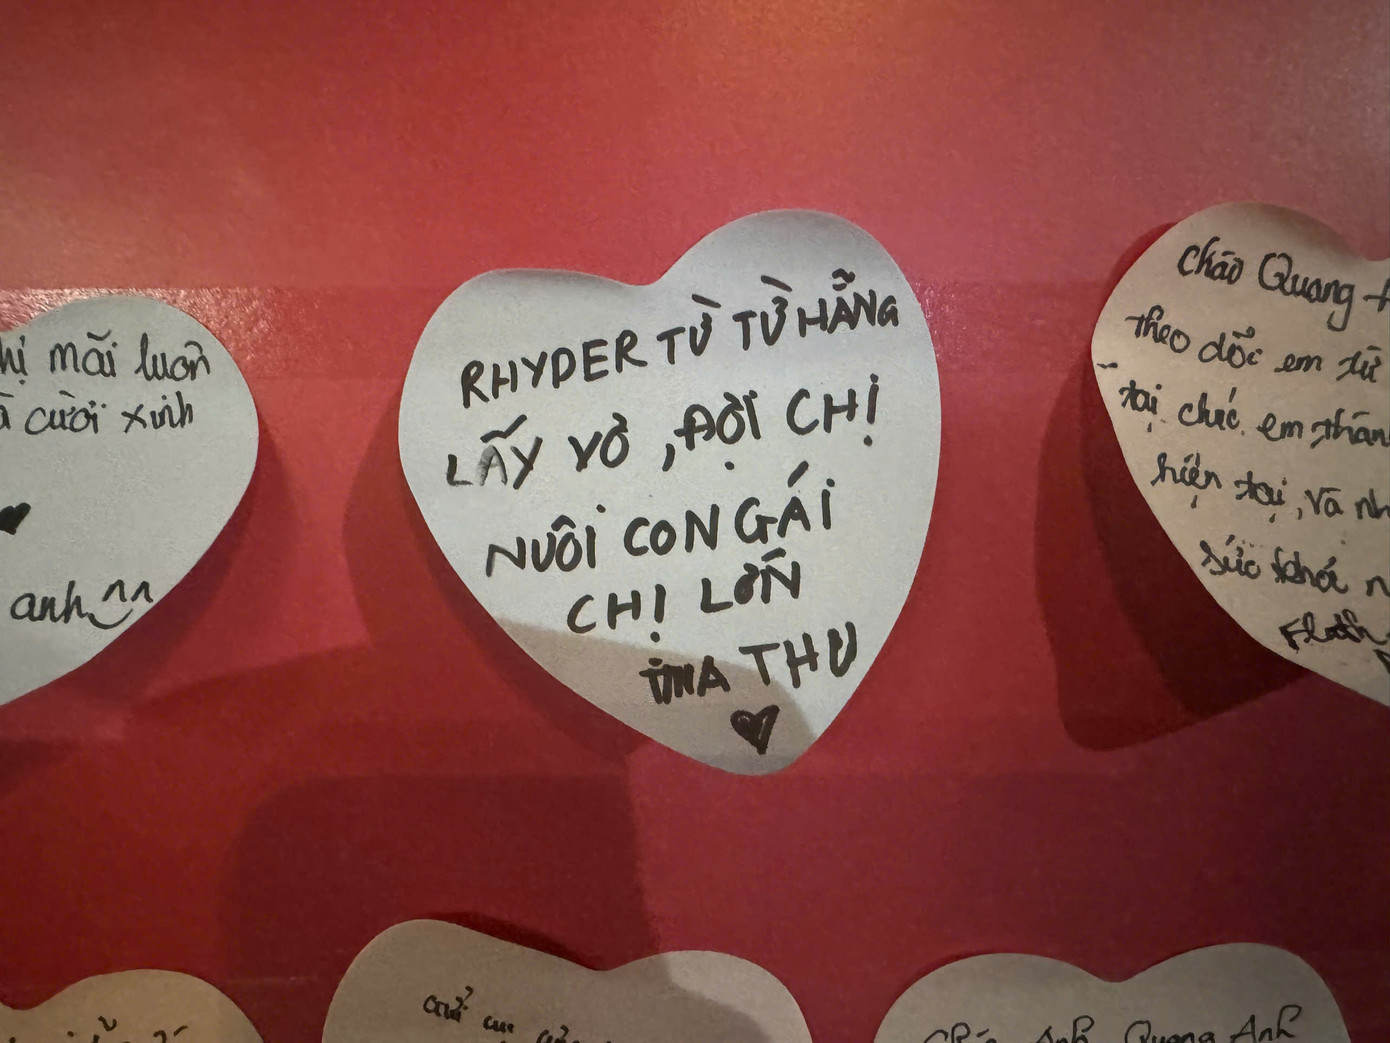 mãi luôn
cười xinh
anh ^^
RHYDER TỪ TỪ HẴNG
LẤY VỢ, ĐỢI CHỊ
NUÔI CON GÁI
CHỊ LỚN
THU
Chào Quang
theo dõi em từ
tại chúc em thành
hiện tại, và nh
sức khỏe n
Anh Quang Anh